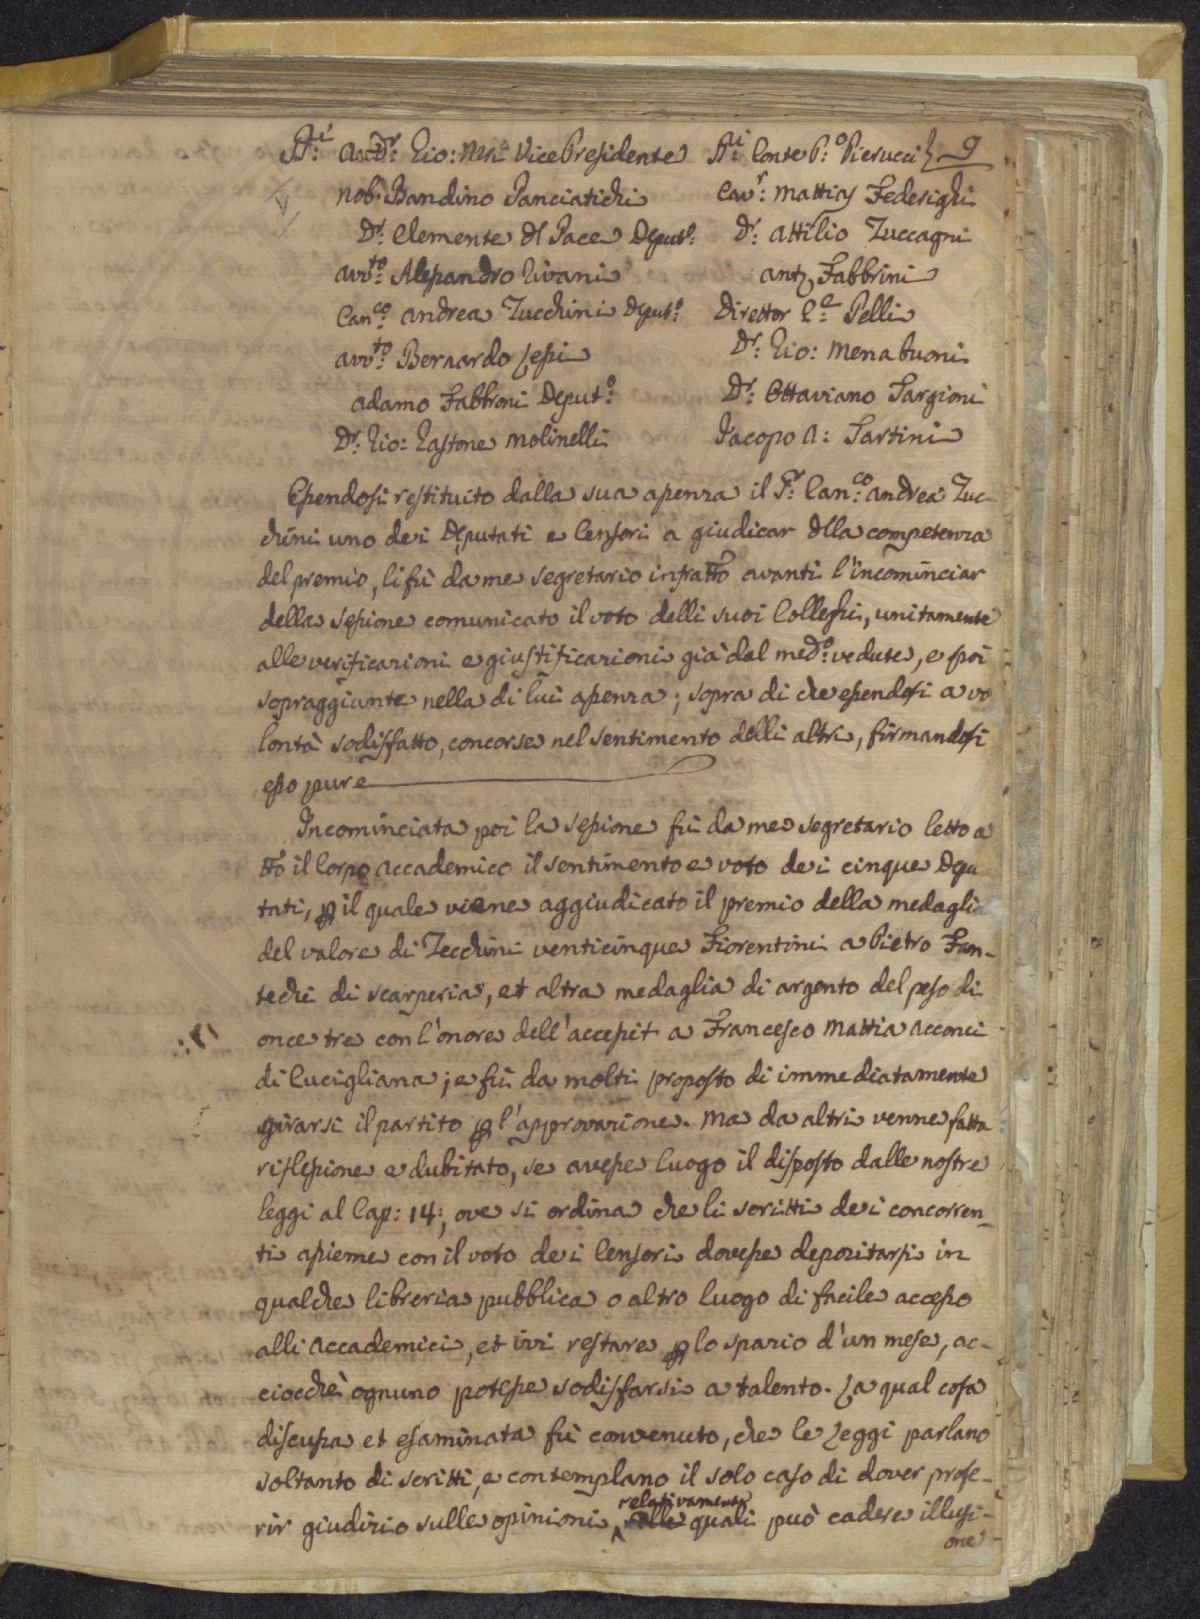 SS:ri Avv: Gio: Neri VicePresidente
Nob. Bandino Panciatichi
Dr: Clemente del Pace Deput:
Avvto: Alessandro Rivani
Canco: Andrea Zucchini Deput:o
Avvto: Bernardo Lessi
Adamo Fabbroni Deput:o
Dr: Gio: Gastone Molinelli
SS:ri Conte P:o Pierucci 9
Cavr: Mattias Federighi
Dr: Attilio Zuccagni
Anto Fabbrini
Director Pelli
Dr: Gio: Menabuoni
Dr: Ottaviano Targioni
Jacopo A: Tartini
Essendosi restituito dalla sua assenza il Sr: Canco: Andrea Zuc-
chini uno dei Deputati e Censori a giudicar della competenza
del premio, li fù da me segretario infratto avanti l'incominciar
della sessione comunicato il voto delli suoi Colleghi, unitamente
alle verificazioni e giustificazioni già dal medo: vedute, e poi
sopraggiunte nella di lui assenza; sopra di che essendosi a vo
lontà sodisfatto, concorse nel sentimento delli altri, firmandosi
esso pure
Incominciata poi la sessione fù da me segretario letto a
tto il Corpo Accademico il sentimento e voto dei cinque Depu
tati, per il quale viene aggiudicato il premio della medaglia
del valore di Zecchini venticinque Fiorentini a Pietro Fan-
techi di Scarperia, et altra medaglia di argento del peso di
once tre con l'onore dell'accessit a Francesco Mattia Acconci
di Lucigliana; e fù da molti proposto di immediatamente
girarsi il partito per l'approvazione. Ma da altri venne fatta
riflessione e dubitato, se avesse luogo il disposto dalle nostre
leggi al Cap: 14:, ove si ordina che li scritti dei concorren-
ti assieme con il voto dei Censori dovesse depozitarsi in
qualche libreria pubblica o altro luogo di facile accesso
alli Accademici, et ivi restare per lo spazio d'un mese, ac-
ciocchè ognuno potesse sodisfarsi a talento. La qual cosa
discussa et esaminata fù convenuto, che le Leggi parlano
soltanto di scritti, e contemplano il solo caso di dover profe-
rir giudizio sulle opinioni, relativamente alle quali può cadere illusi-
one